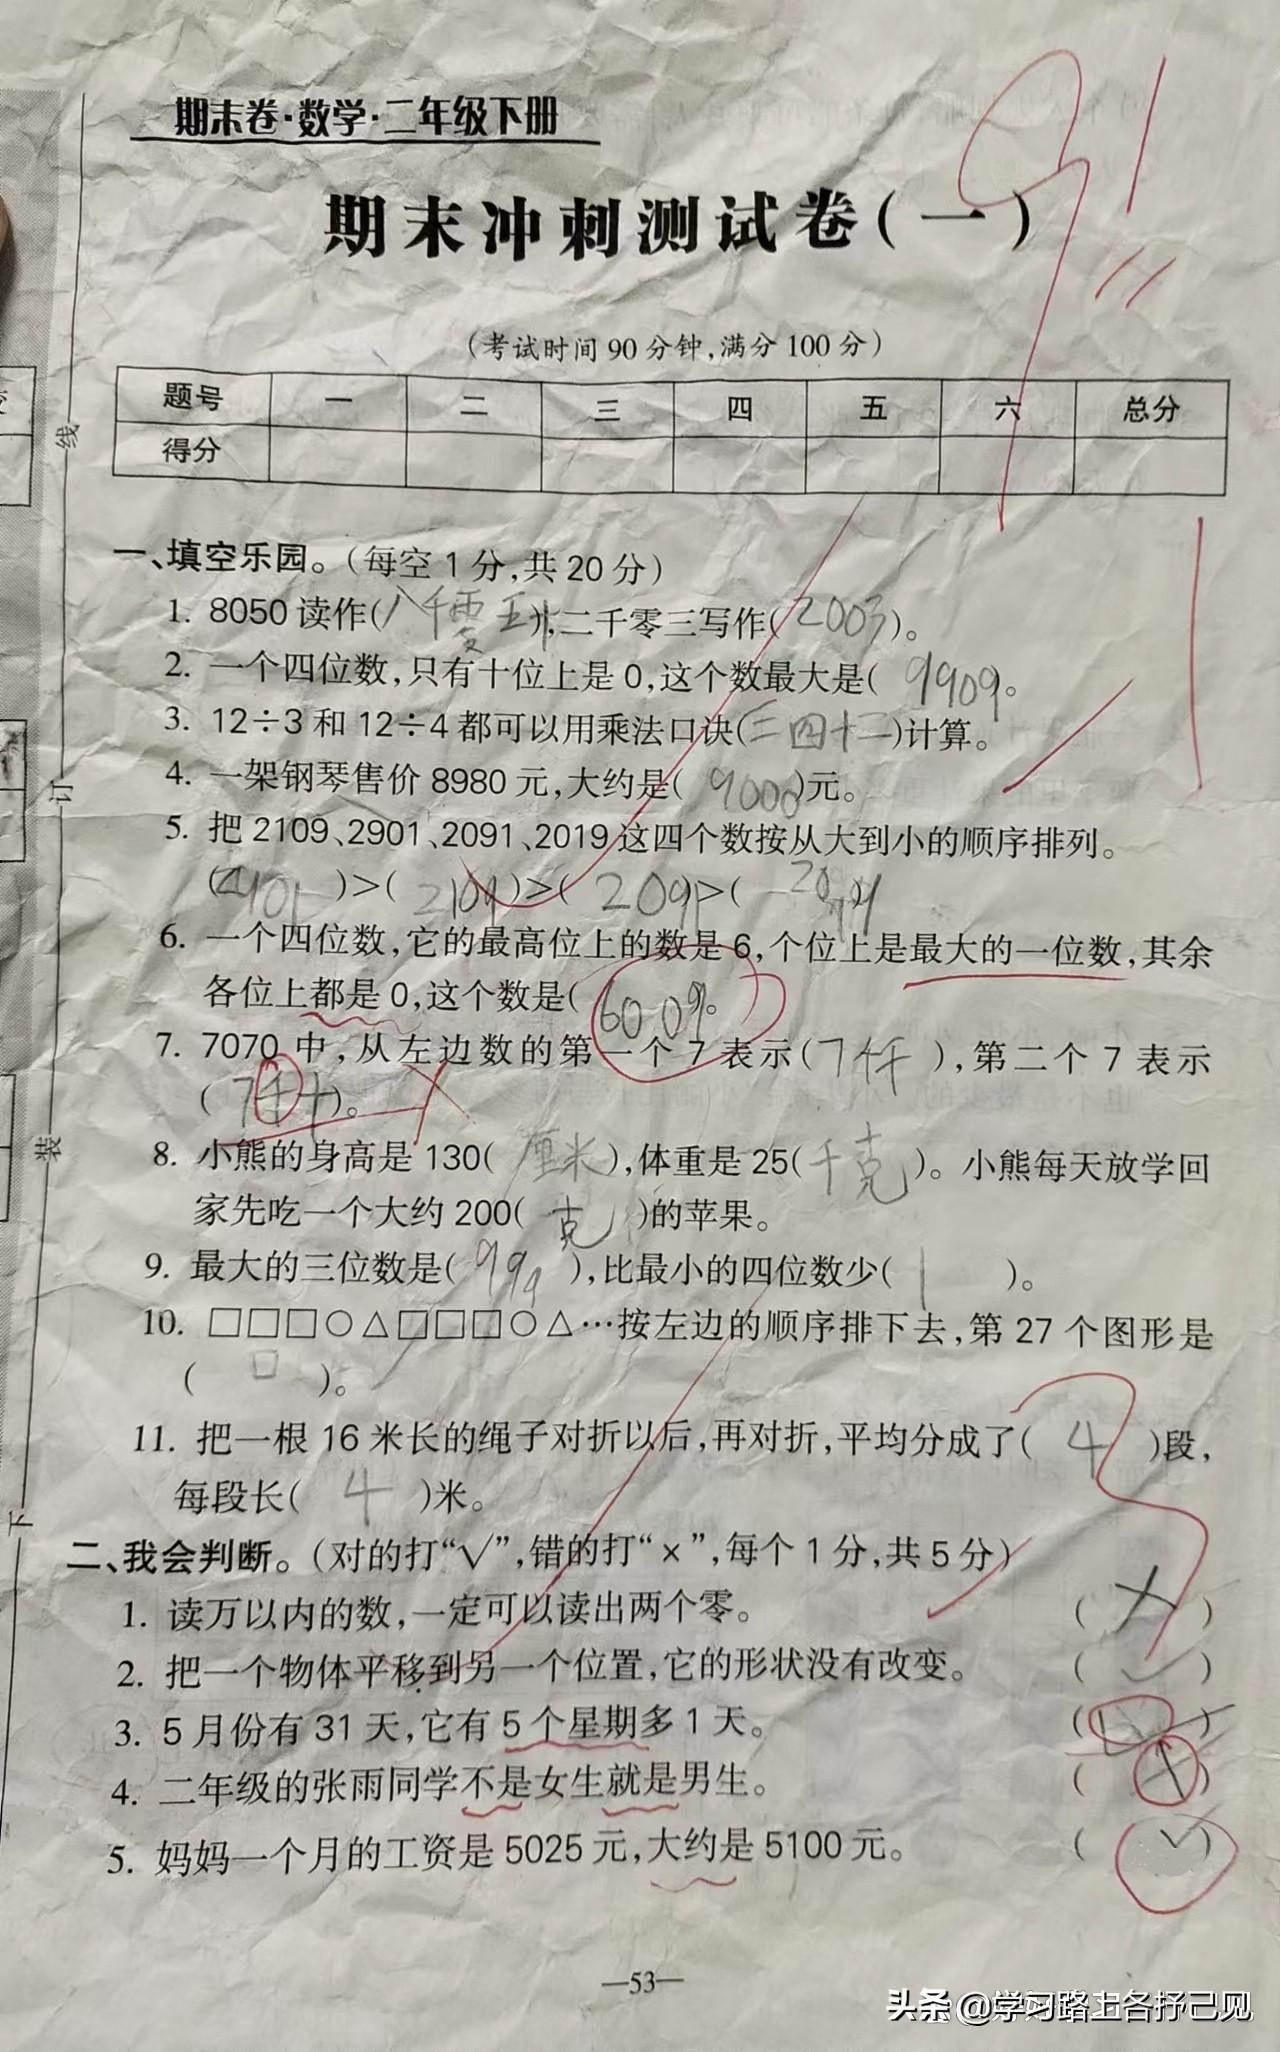 期末卷·数学·二年级下册
91
期末冲刺测试卷(一)
(考试时间90分钟,满分100分)
题号 一 二 三 四 五 六 总分
得分
一、填空乐园。(每空1分,共20分)
1. 8050读作(八千零五十),二千零三写作(2003)。
2. 一个四位数,只有十位上是0,这个数最大是(9909。
3. 12÷3和12÷4都可以用乘法口诀(三四十二)计算。
4. 一架钢琴售价8980元,大约是(9000)元。
5. 把2109、2901、2091、2019这四个数按从大到小的顺序排列。
(2901)>(2109)>(2091>(2019)
6. 一个四位数,它的最高位上的数是6,个位上是最大的一位数,其余
各位上都是0,这个数是(6009。
7. 7070中,从左边数的第一个7表示(7仟),第二个7表示
(7千十)。
8. 小熊的身高是130(厘米),体重是25(千克)。小熊每天放学回
家先吃一个大约200(克)的苹果。
9. 最大的三位数是(999),比最小的四位数少(1)。
10. □□□○△□□□○△…按左边的顺序排下去,第27个图形是
(□)。
11. 把一根16米长的绳子对折以后,再对折,平均分成了(4)段,
每段长(4)米。
二、我会判断。(对的打“√”,错的打“×”,每个1分,共5分)
1. 读万以内的数,一定可以读出两个零。 (×)
2. 把一个物体平移到另一个位置,它的形状没有改变。 (√)
3. 5月份有31天,它有5个星期多1天。 ( )
4. 二年级的张雨同学不是女生就是男生。 (×)
5. 妈妈一个月的工资是5025元,大约是5100元。 (√)
—53—
线
订
装
下
头条@学习路上各抒己见